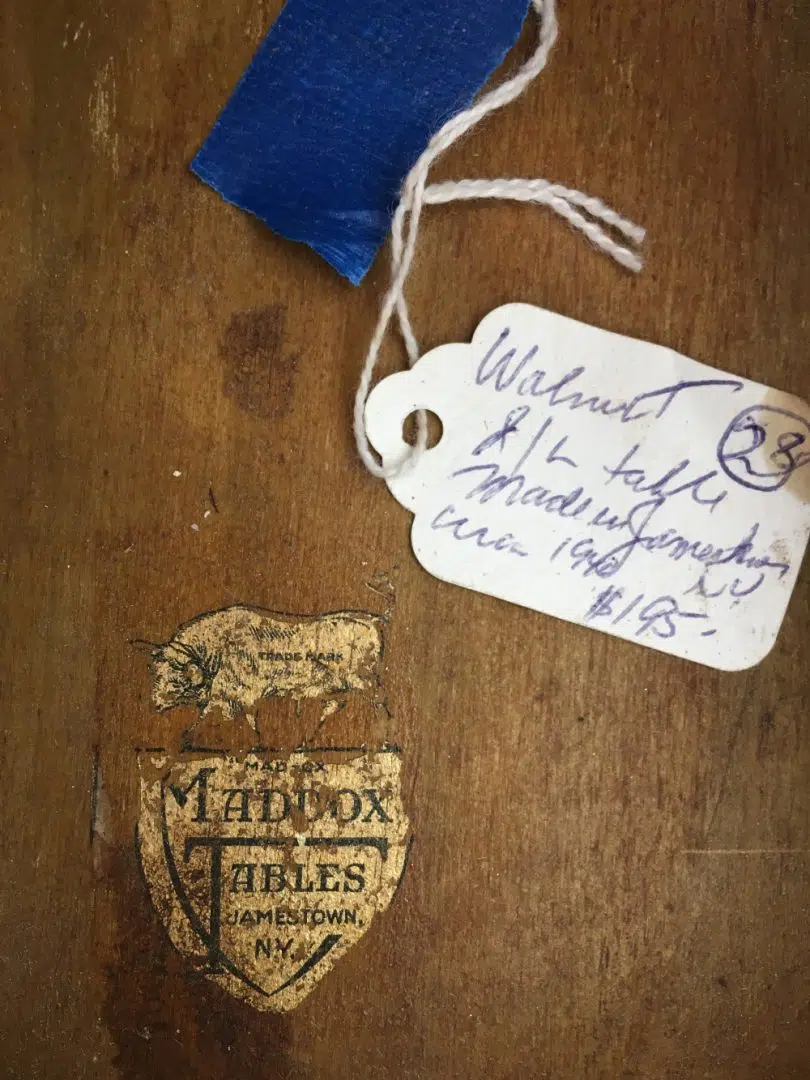 Walnut
28
D/L table
Made in Jamestown
NY
circa 1940
$195.-
TRADE MARK
MAD-OX
MADDOX
TABLES
JAMESTOWN,
N.Y.